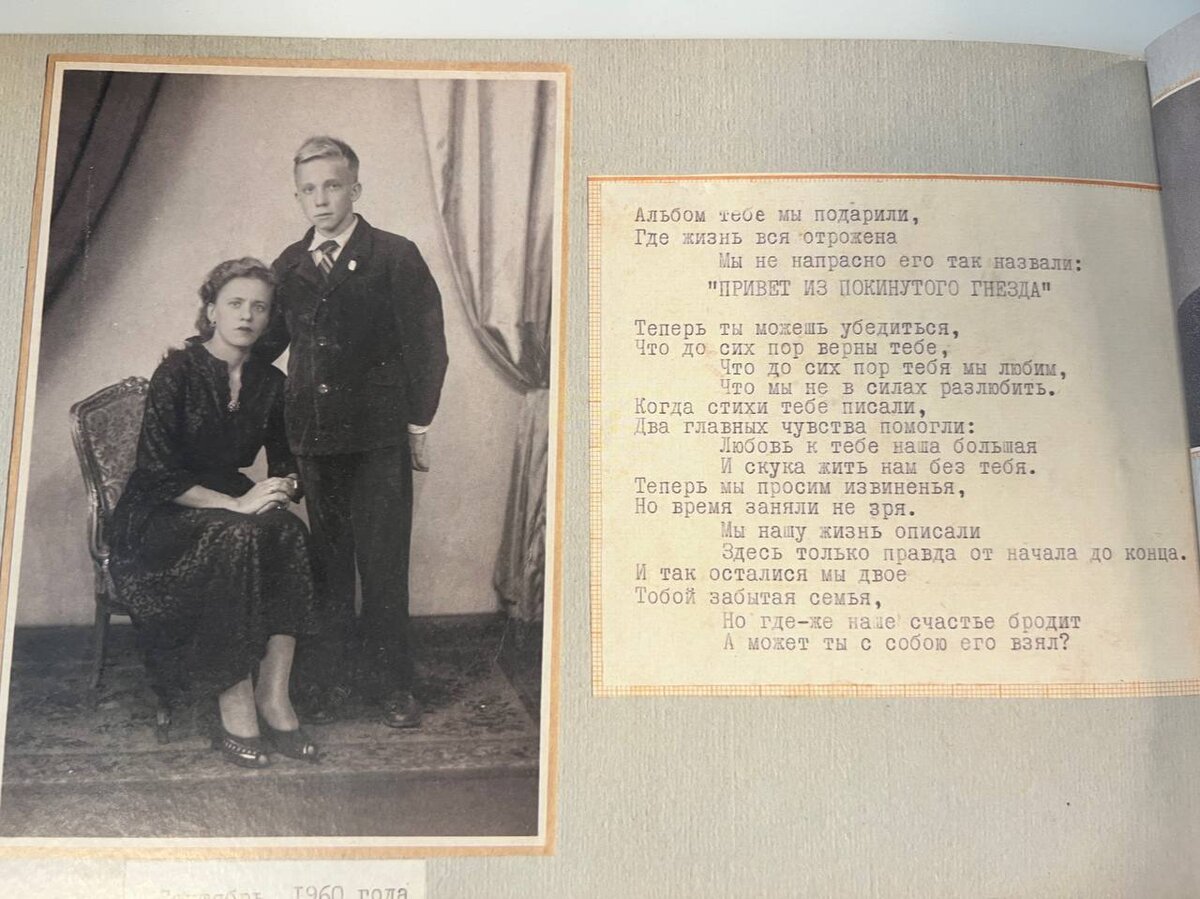 Альбом тебе мы подарили,
Где жизнь вся отрожена
Мы не напрасно его так назвали:
"ПРИВЕТ ИЗ ПОКИНУТОГО ГНЕЗДА"
Теперь ты можешь убедиться,
Что до сих пор верны тебе,
Что до сих пор тебя мы любим,
Что мы не в силах разлюбить.
Когда стихи тебе писали,
Два главных чувства помогли:
Любовь к тебе наша большая
И скука жить нам без тебя.
Теперь мы просим извиненья,
Но время заняли не зря.
Мы нашу жизнь описали
Здесь только правда от начала до конца.
И так осталися мы двое
Тобой забытая семья,
Но где-же наше счастье бродит
А может ты с собою его взял?
1960 года